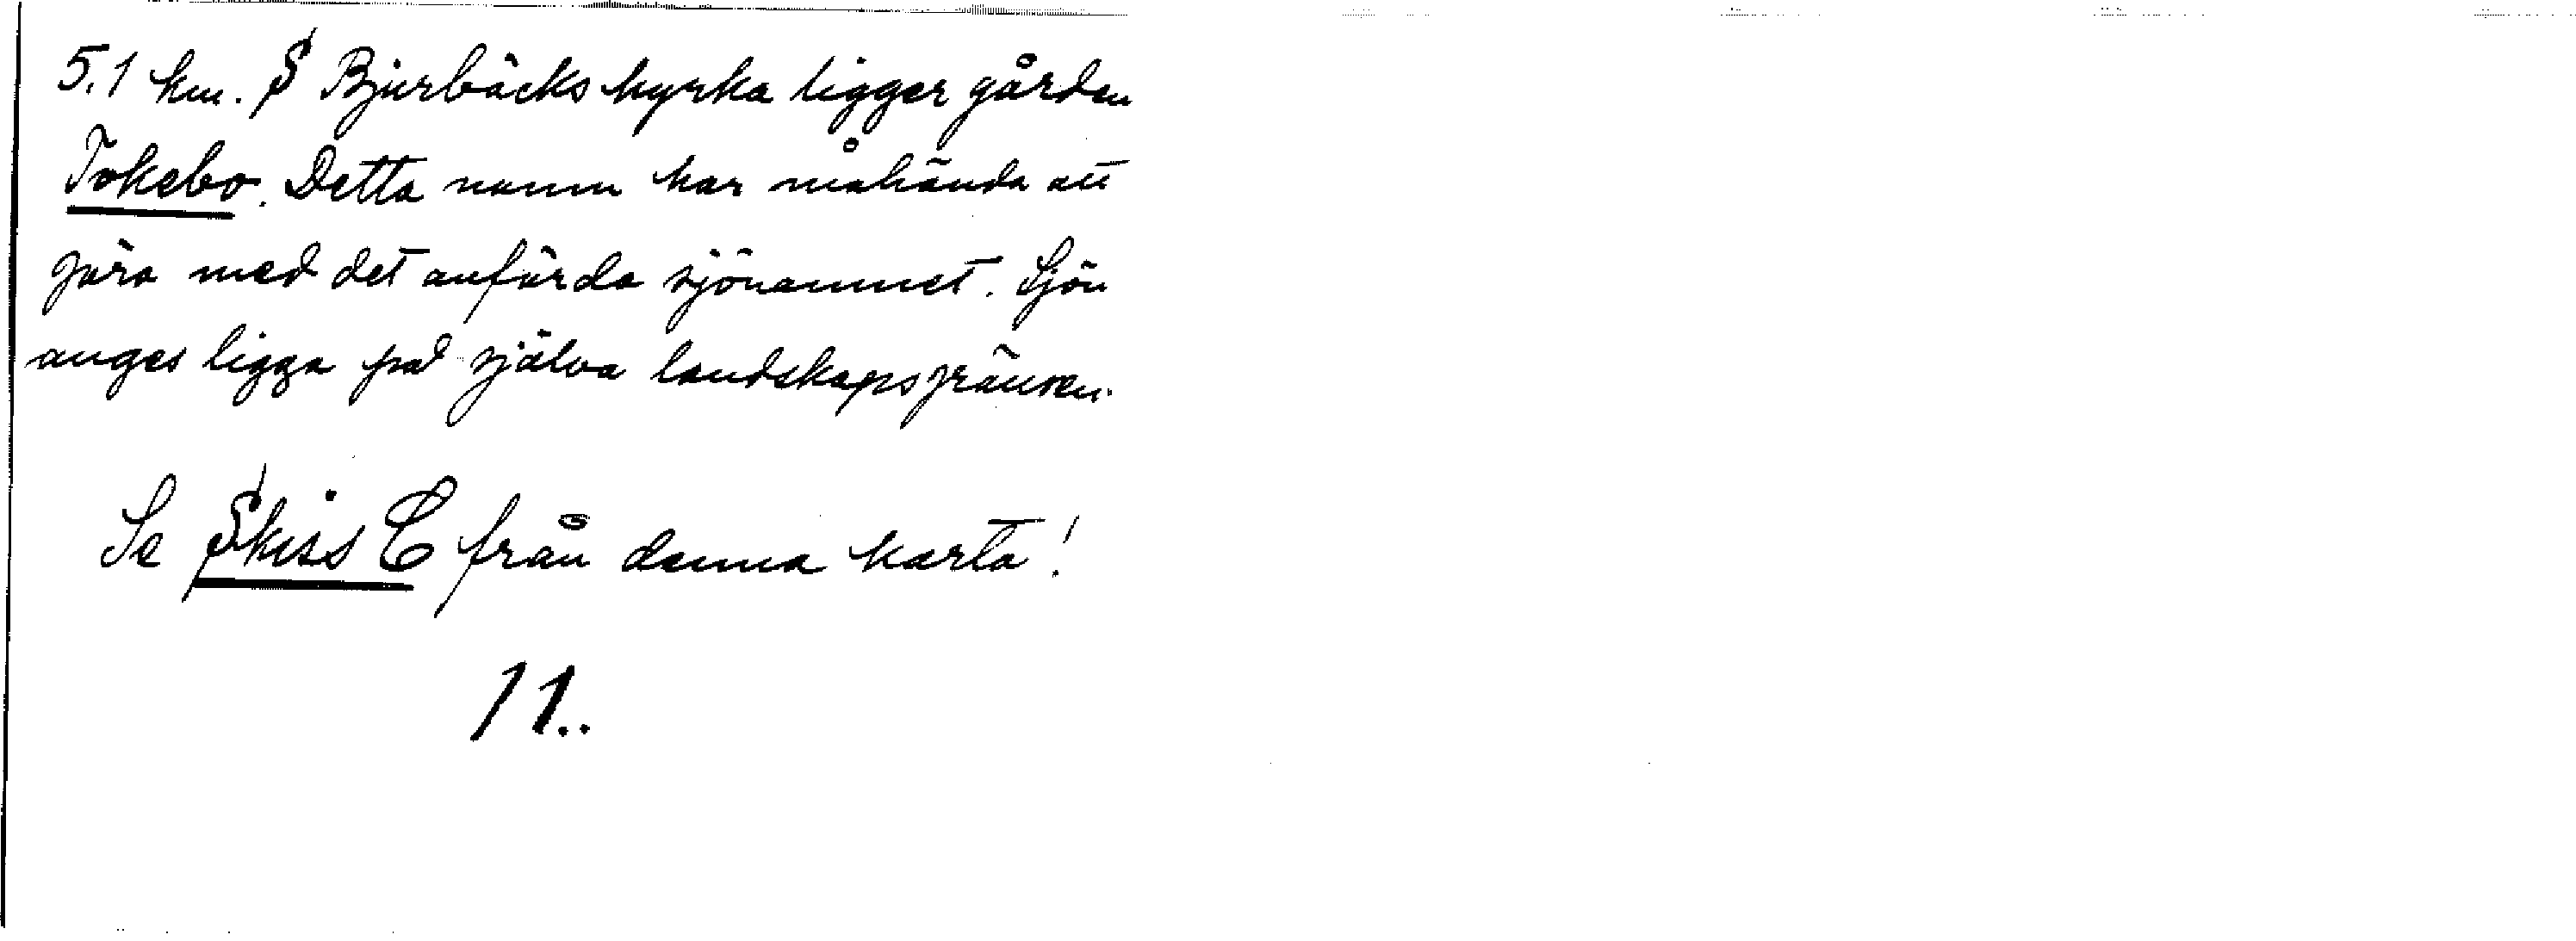 5.1 km. S Bjurbäcks kyrka ligger gården
Tokebo. Detta namn har måhända att
göra med det anförda sjönamnet. Sjön
anges ligga på själva landskapsgränsen.
Se Skiss C från denna karta!
11..